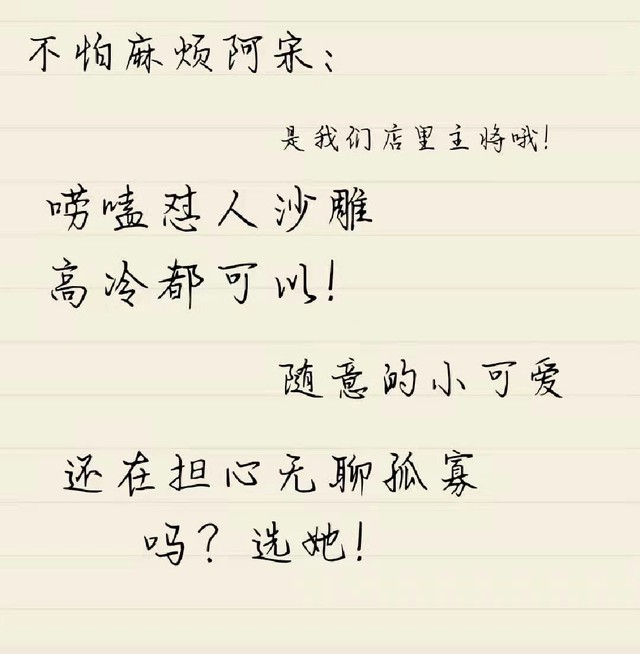 不怕麻烦阿宋；
是我们店里主将哦！
唠嗑怼人沙雕
高冷都可以！
随意的小可爱
还在担心无聊孤寡
吗？选她！